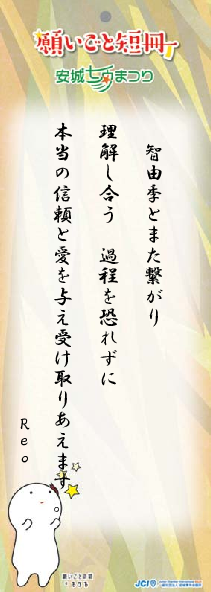 願いごと短冊
安城七夕まつり
智由季とまた繋がり
理解し合う　過程を恐れずに
本当の信頼と愛を与え受け取りあえます
Reo
願いごと短冊
JCI